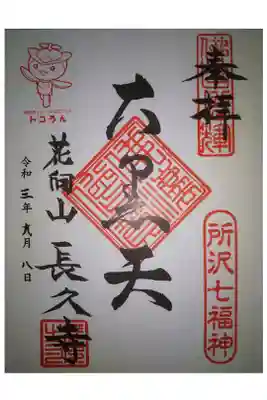 奉拝
所沢七福神
大黒天
花向山 長久寺
令和 三年 九月 八日
トコろん